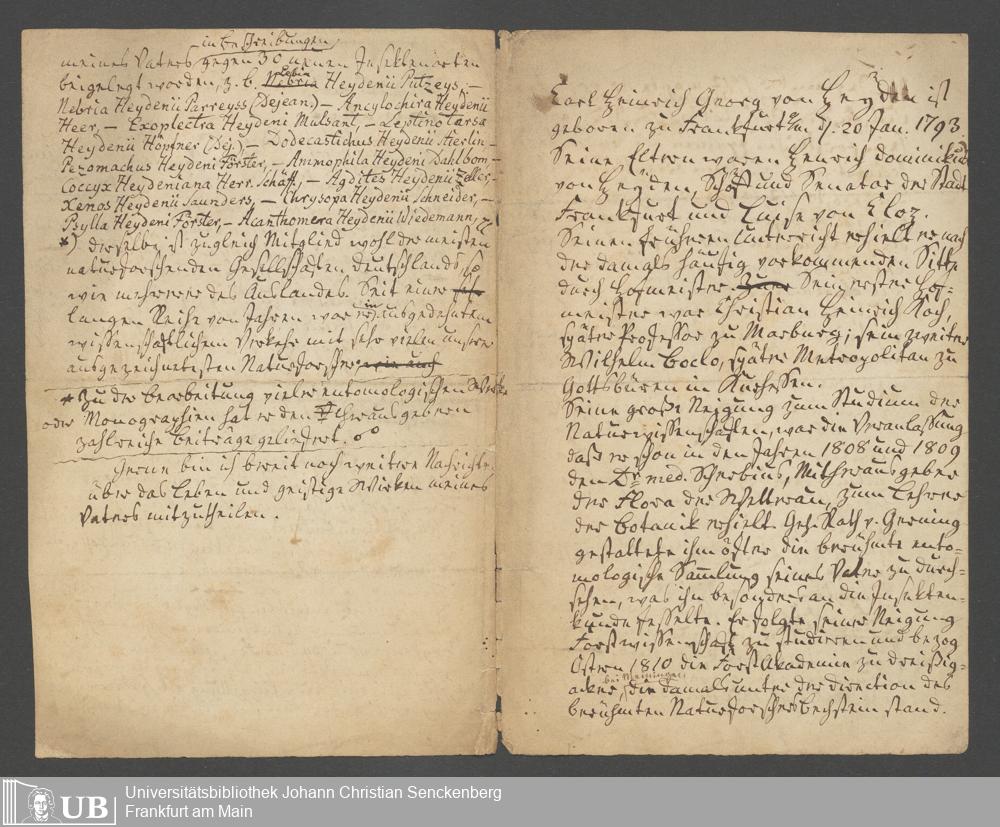 in Beschreibungen
meines Vaters gegen 30 neuen Insektenarten
beigelegt worden, z. b. Nebria Lebia Heydenii Putzeys, –
Nebria Heydenii Parreyss (Dejean) – Ancylochira Heydenii
Heer, – Exoplectra Heydeni Mulsant, – Leptinotarsa
Heydenii Höpfner (Dej.), – Dodecastichus Heydenii Stierlin –
Pezomachus Heydeni Förster, – Ammophila Heydeni Dahlbom, –
Coccyx Heydeniana Herr. Schäff, – Agdites Heydenii Zeller, –
Xenos Heydenii Saunders, – Chrysopa Heydenii Schneider, –
Psylla Heydeni Förster, – Acanthomera Heydenii Wiedemann,
*) derselbe ist zugleich Mitglied wohl der meisten
naturforschenden Gesellschaften Deutschlands so
wie mehrerer des Auslandes. Seit einer
langen Reihe von Jahren war er in ausgedehntem
wissenschaftlichem Verkehr mit sehr vielen unserer
ausgezeichnetesten Naturforscher wie auch
* Zu der Bearbeitung vieler entomologischen Werke
oder Monographien hat er den Herausgebern
zahlreiche Beiträge geliefert.
Gerne bin ich bereit noch weitere Nachrichten
über das Leben und geistige Wirken meines
Vaters mitzutheilen.
Carl Heinrich Georg von Heyden ist
geboren zu Frankfurt a/m d. 20 Jan. 1793.
Seine Eltern waren Henrich Dominikus
von Heyden, Schöff und Senator der Stadt
Frankfurt und Luise von Cloz.
Seinen frühren Unterricht erhielt er nach
der damals häufig vorkommenden Sitte
durch Hofmeister. Sein erster Hof-
meister war Christian Heinrich Koch,
später Professor zu Marburg; sein zweiter
Wilhelm Boclo, später Metropolitan zu
Gottsbüren in Kurhessen.
Seine große Neigung zum Studium der
Naturwissenschaften, war die Veranlassung
daß er schon in den Jahren 1808 und 1809
den Dr med. Scherbius, Mitherausgeber
der Flora der Wetterau, zum Lehrer
der Botanik erhielt. Geh. Rath v. Gerning
gestattete ihm öfter die berühmte ento-
mologische Sammlung seines Vater zu durch-
sehen, was ihn besonders an die Insekten-
kunde fesselte. Er folgte seiner Neigung
Forstwissenschaft zu studieren und bezog
Ostern 1810 die Forstakademie zu Dreißig-
bei Meiningen
acker, die damals unter der Direction des
berühmten Naturforschers Bechstein stand.
UB
Universitätsbibliothek Johann Christian Senckenberg
Frankfurt am Main